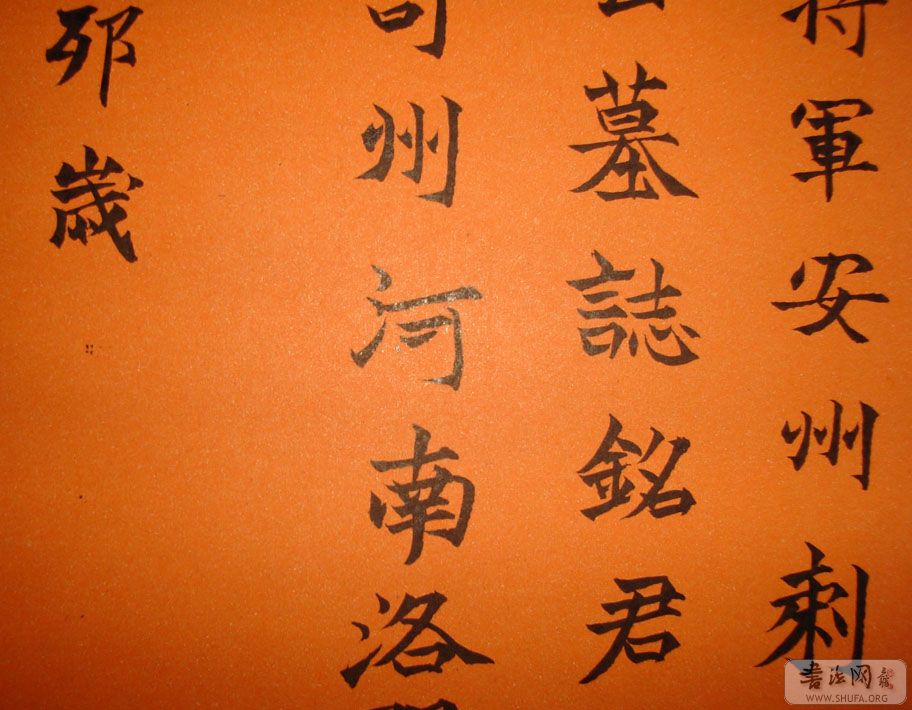 將軍安州刺
墓誌銘君
司州河南洛
夘歳
書法网
WWW.SHUFA.ORG